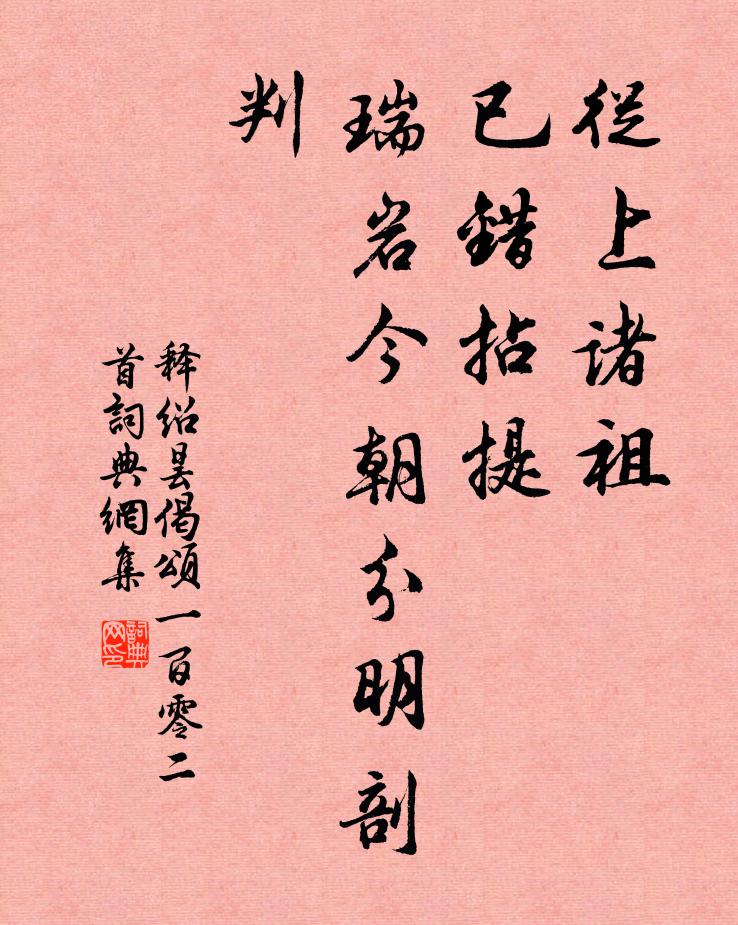 從上诸祖
已錯拈提
瑞岩今朝分明剖
判
释绍昙偈頌一百零二
首詞典網集
詞典
网印